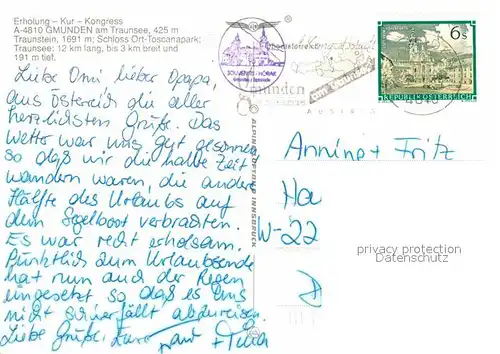 Erholung – Kur – Kongress
A-4810 GMUNDEN am Traunsee, 425 m
Traunstein, 1691 m; Schloss Ort-Toscanapark;
Traunsee: 12 km lang, bis 3 km breit und
191 m tief.
Liebe Omi lieber Opapa,
aus Österreich die aller
herzlichsten Grüße. Das
Wetter war uns gut gesonnen
so daß wir die halbe Zeit
wandern waren, die andere
Hälfte des Urlaubs auf
dem Segelboot verbrachten.
Es war recht erholsam.
Pünktlich zum Urlaubsende
hat nun auch der Regen
eingesetzt so daß es uns
nicht schwerfällt abzureisen.
Liebe Grüße, Eure
und
SOUVENIRS - HORAK
ALPINE LUFTBILD INNSBRUCK
gmunden
am Traunsee
AUSTRIA
6s
REPUBLIK ÖSTERREICH
+ Fritz
Ha
W-22
D
privacy protection
Datenschutz